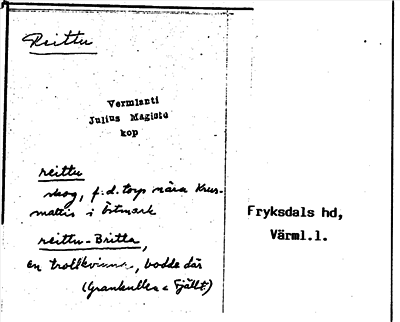 Reittu
Vermlanti
Julius Mägiste
kop
reittu
skog, f.d. torp nära Krus-
mattis i Östmark
reittu-Britta,
en trollkvinna, bodde där
(Grankulla a Fjället)
Fryksdals hd,
Värml.l.